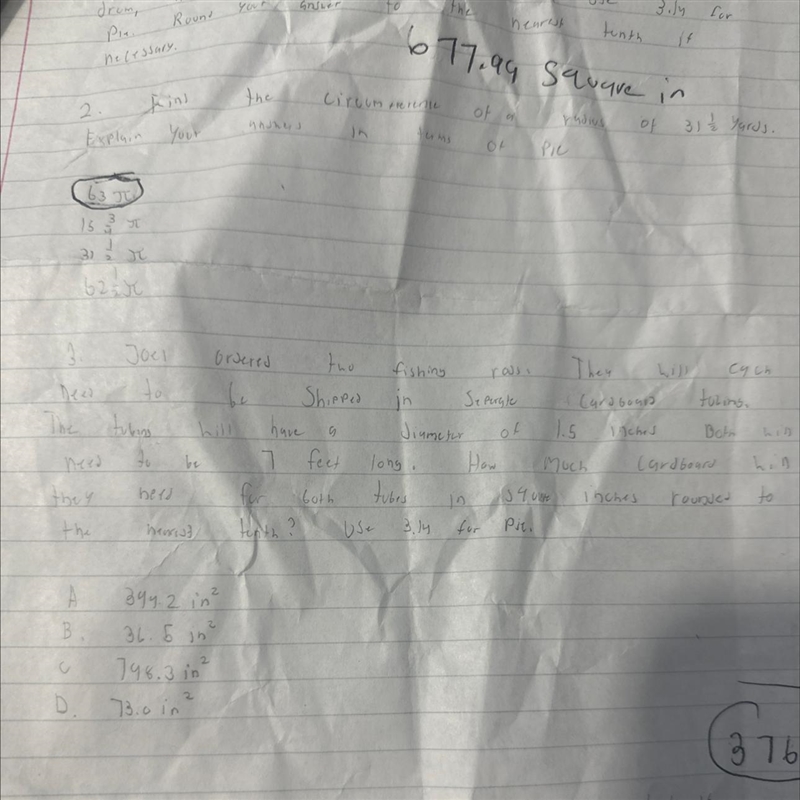 drum, Round your answer to the nearest tenth if
3.14 for
Pie.
necessary.
677.99 Square in
2. Fins the circumverence of a radius of 31 1/2 yards.
Explain your answers in terms of Pie
63 π
15 3/4 π
31 1/2 π
62 1/2 π
3. Joel ordered two fishing rods. They will each
need to be Shipped in Separate Cardboard tubing.
The tubing will have a diameter of 1.5 inches Both will
need to be 7 feet long. How Much Cardboard will
they need for both tubes in square inches rounded to
the nearest tenth? Use 3.14 for Pie.
A 399.2 in²
B. 36.5 in²
C 798.3 in²
D. 73.0 in²
376